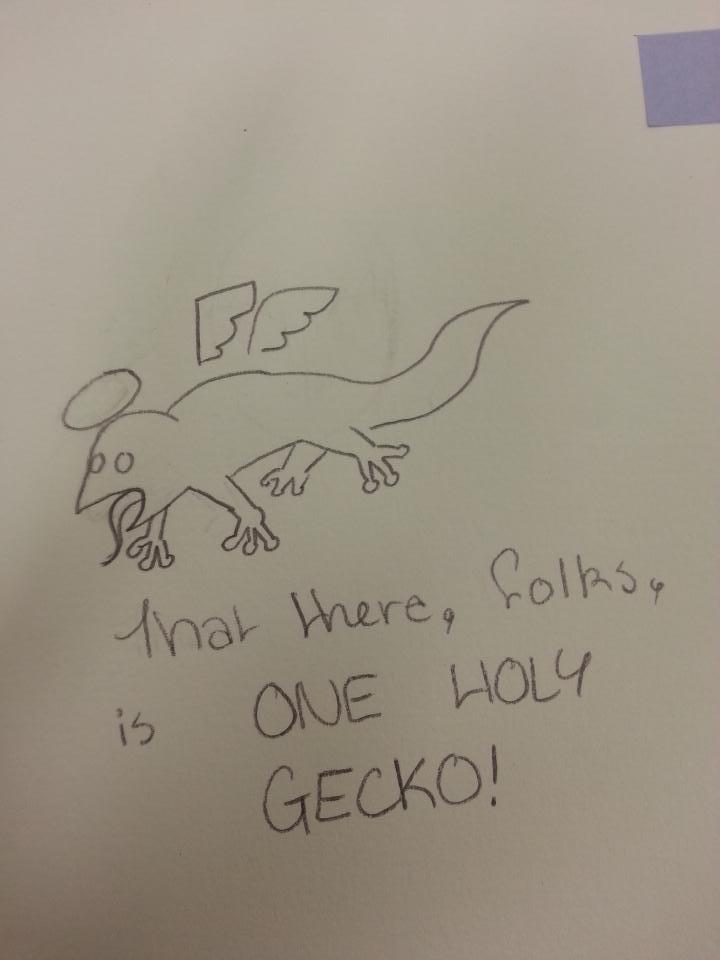 That there, folks,
is ONE HOLY
GECKO!